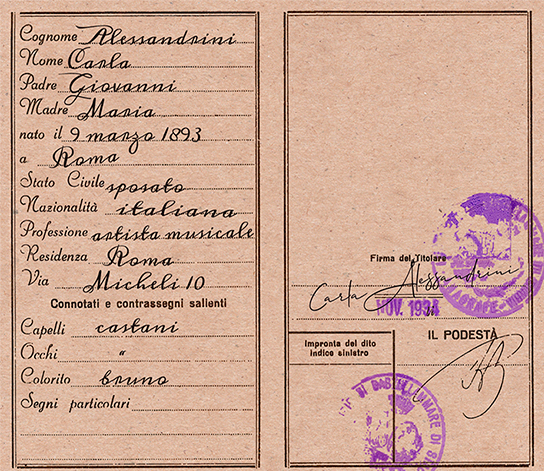 Cognome Alessandrini
Nome Carla
Padre Giovanni
Madre Maria
nato il 9 marzo 1893
a Roma
Stato Civile sposato
Nazionalità italiana
Professione artista musicale
Residenza Roma
Via Micheli 10
Connotati e contrassegni salienti
Capelli castani
Occhi "
Colorito bruno
Segni particolari
Firma del Titolare
Carla Alessandrini
NOV. 1934
Impronta del dito
indice sinistro
IL PODESTÀ
DI CASTELLAMMARE DI